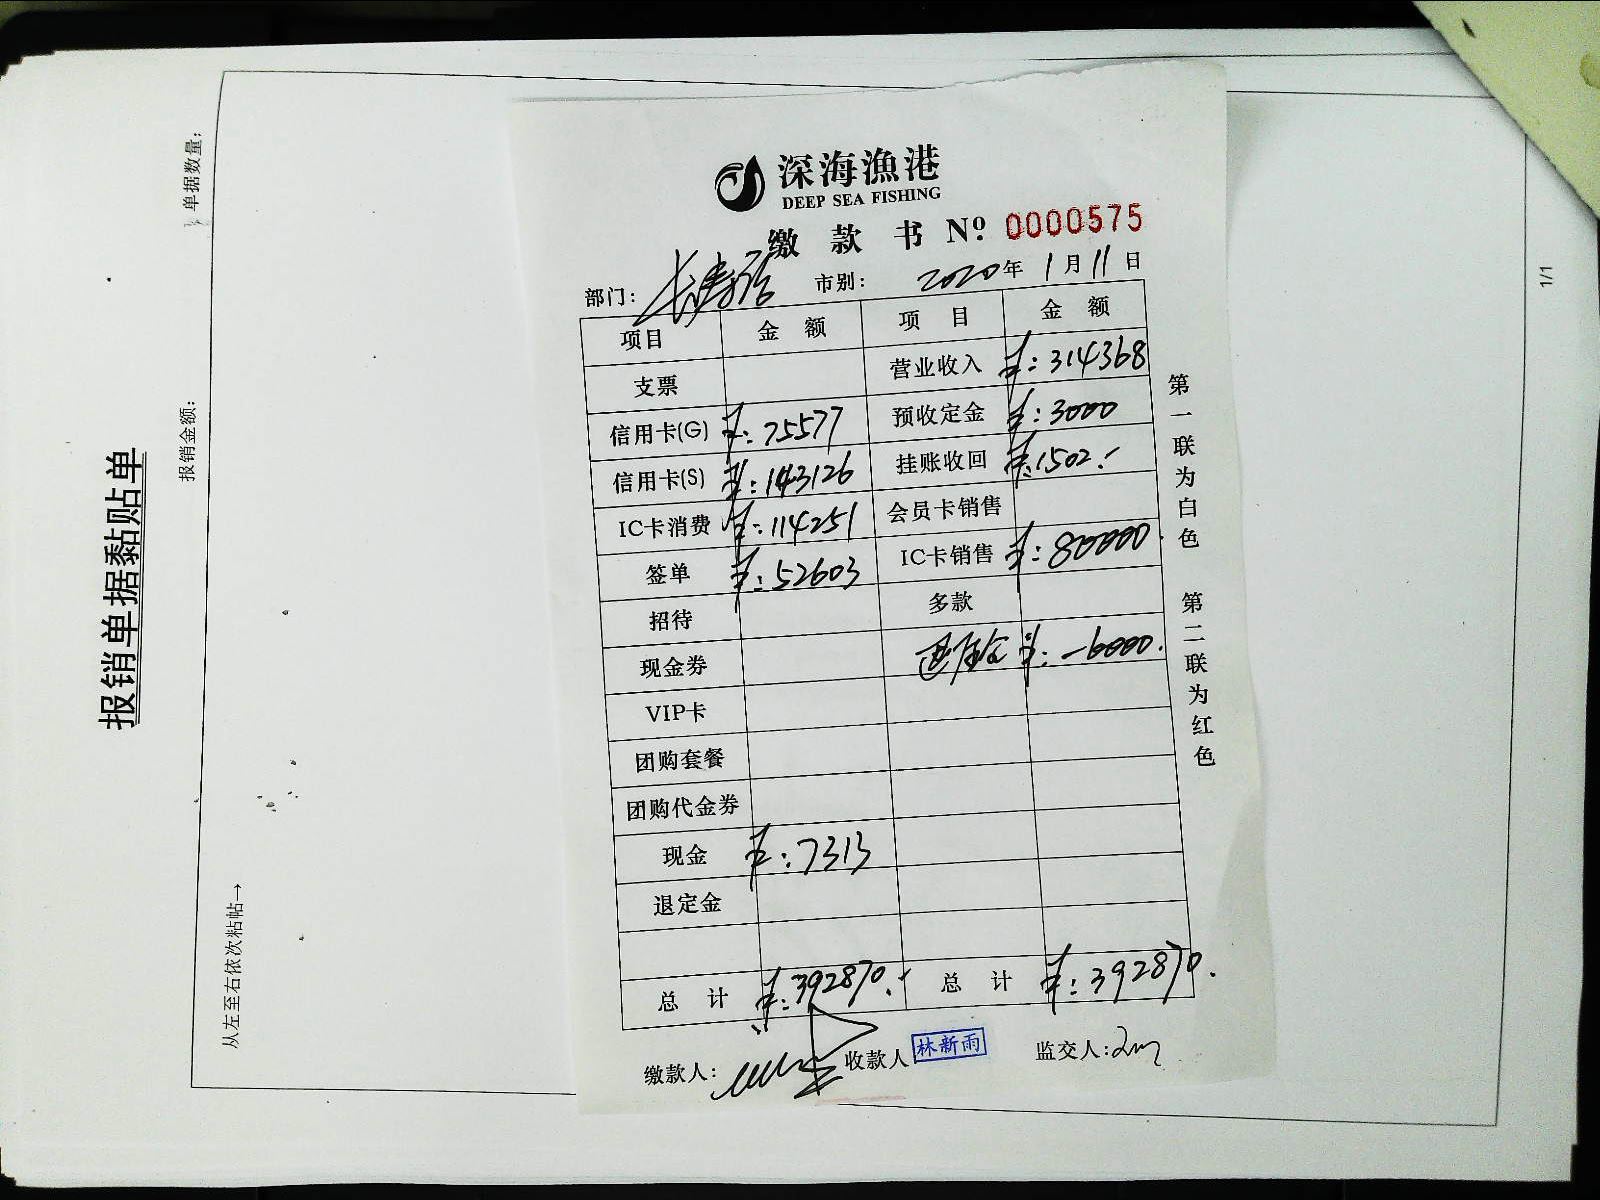 报销单据黏贴单
报销金额:
单据数量:
从左至右依次粘帖→
1/1
深海漁港
DEEP SEA FISHING
缴款书 Nº 0000575
部门: 市别: 2020年1月11日
项目 金额 项目 金额
支票 营业收入 ¥:314368
信用卡(G) ¥:75577 预收定金 ¥:3000
信用卡(S) ¥:143126 挂账收回 ¥:1502.-
IC卡消费 ¥:114251 会员卡销售
签单 ¥:52603 IC卡销售 ¥:80000.
招待 多款
现金券 退定金 ¥:-6000.
VIP卡
团购套餐
团购代金券
现金 ¥:7313
退定金
总计 ¥:392870.- 总计 ¥:392870.
缴款人: 收款人 林新雨 监交人:
第一联为白色
第二联为红色